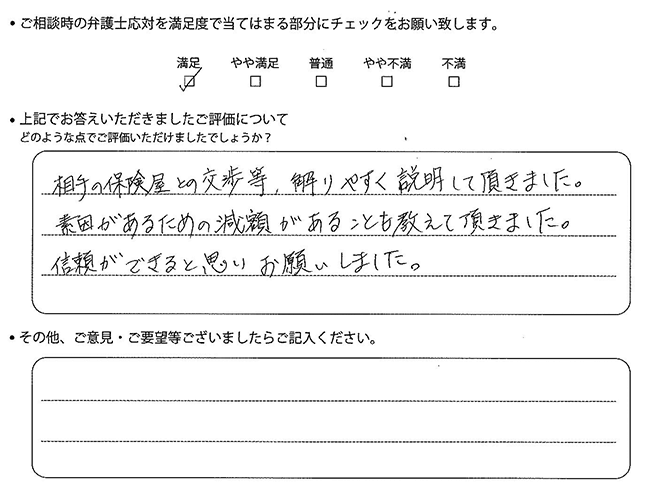 ・ご相談時の弁護士応対を満足度で当てはまる部分にチェックをお願い致します。
満足 やや満足 普通 やや不満 不満
・上記でお答えいただきましたご評価について
どのような点でご評価いただけましたでしょうか？
相手の保険屋との交渉等、解りやすく説明して頂きました。
素因があるための減額があることも教えて頂きました。
信頼ができると思いお願いしました。
・その他、ご意見・ご要望等ございましたらご記入ください。